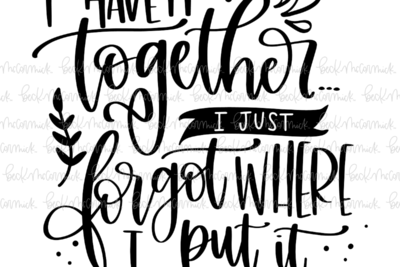 I HAVE IT
together...
I JUST
forgot WHERE
I put it